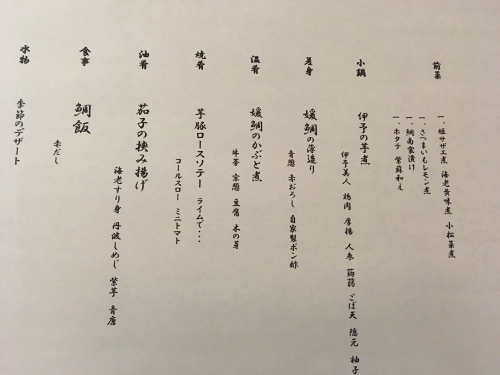 前菜
一、姫サザエ煮 海老黄味煮 小松菜煮
一、さつまいもレモン煮
一、鯛南蛮漬け
一、ホタテ 紫蘇和え
小鍋
伊予の芋煮
伊予美人 鶏肉 厚揚 人参 蒟蒻 ごぼ天 隠元 柚子
差身
媛鯛の薄造り
青葱 赤おろし 自家製ポン酢
温肴
媛鯛のかぶと煮
牛蒡 京葱 豆腐 木の芽
焼肴
芋豚ロースソテー ライムで・・・
コールスロー ミニトマト
油肴
茄子の挟み揚げ
海老すり身 丹波しめじ 紫芋 青唐
食事
鯛飯
赤だし
水物
季節のデザート